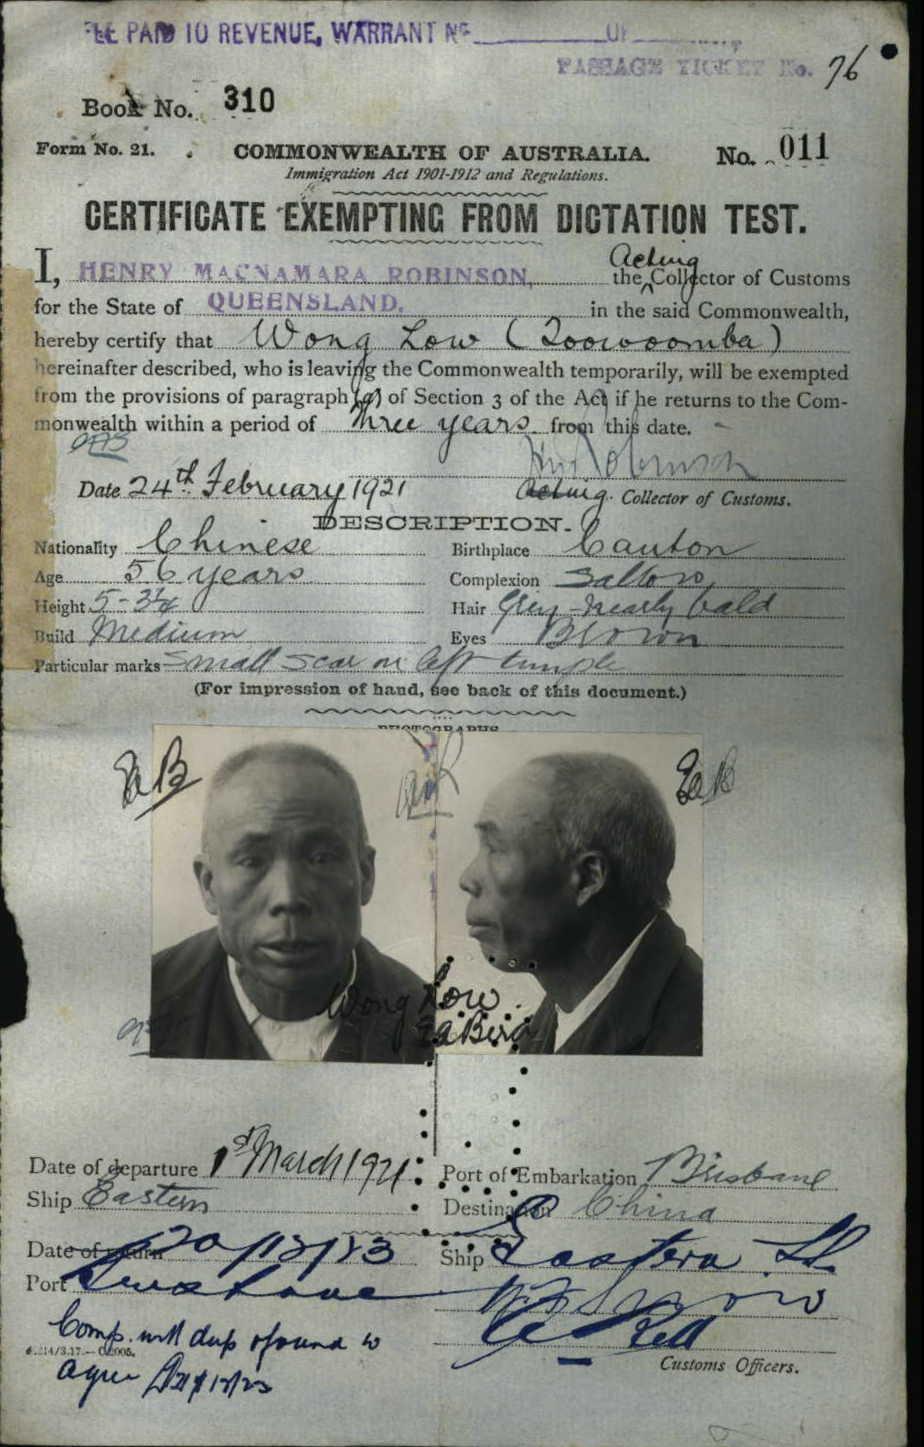 FEE PAID TO REVENUE, WARRANT No OF
PASSAGE TICKET No. 76
Book No. 310
Form No. 21. COMMONWEALTH OF AUSTRALIA. No. 011
Immigration Act 1901-1912 and Regulations.
CERTIFICATE EXEMPTING FROM DICTATION TEST.
I, HENRY MACNAMARA ROBINSON, the Acting Collector of Customs
for the State of QUEENSLAND. in the said Commonwealth,
hereby certify that Wong Low (Toowoomba)
hereinafter described, who is leaving the Commonwealth temporarily, will be exempted
from the provisions of paragraph (a) of Section 3 of the Act if he returns to the Com-
monwealth within a period of Three years from this date.
Date 24th February 1921 Acting Collector of Customs.
DESCRIPTION.
Nationality Chinese Birthplace Canton
Age 56 years Complexion Sallow
Height 5-3¼ Hair Grey-nearly bald
Build Medium Eyes Brown
Particular marks Small scar on left temple
(For impression of hand, see back of this document.)
PHOTOGRAPHS
Wong Low
Date of departure 1st March 1921 Port of Embarkation Brisbane
Ship Eastern Destination China
Date of return Ship Eastern
Port
Comp. with dup & found to
agree
Customs Officers.